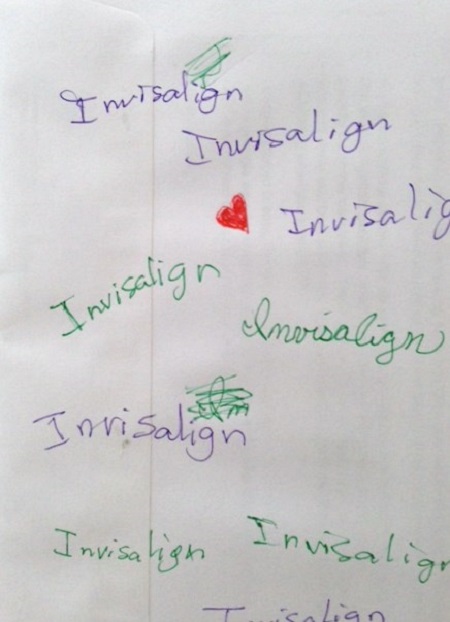 Invisalign
Invisalign
Invisalig
Invisalign
Invisalign
Invisalign
Invisalign
Invisalign
Invisalign